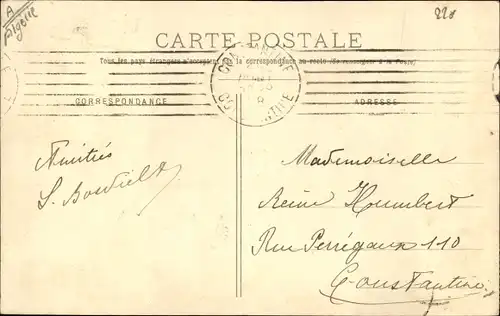 A
Algérie
220
CARTE POSTALE
Tous les pays étrangers n'acceptent pas la correspondance au recto (Se renseigner à la Poste)
CORRESPONDANCE
ADRESSE
CONSTANTINE
Amitiés
Mademoiselle
Reine Houmbert
Rue Perrégaux 110
Constantine